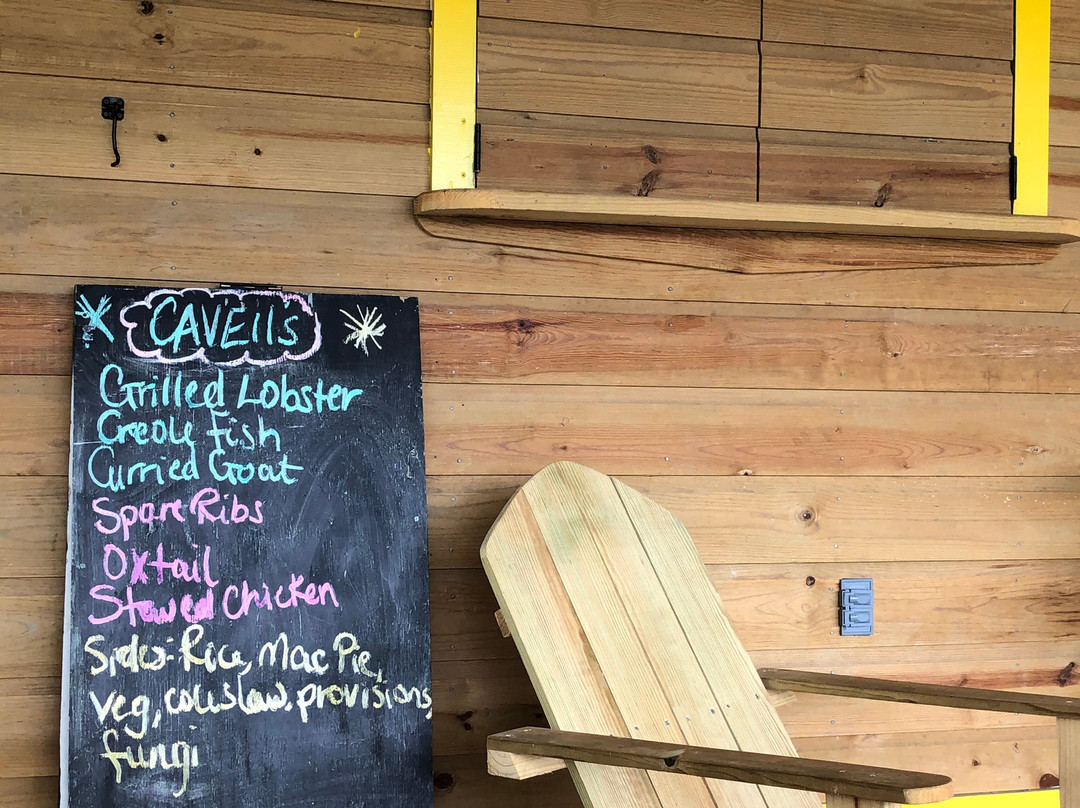 CAVEll's
Grilled Lobster
Creole fish
Curried Goat
Spare Ribs
Oxtail
Stewed Chicken
Sides:-Rice, Mac Pie,
veg, coleslaw, provisions,
fungi